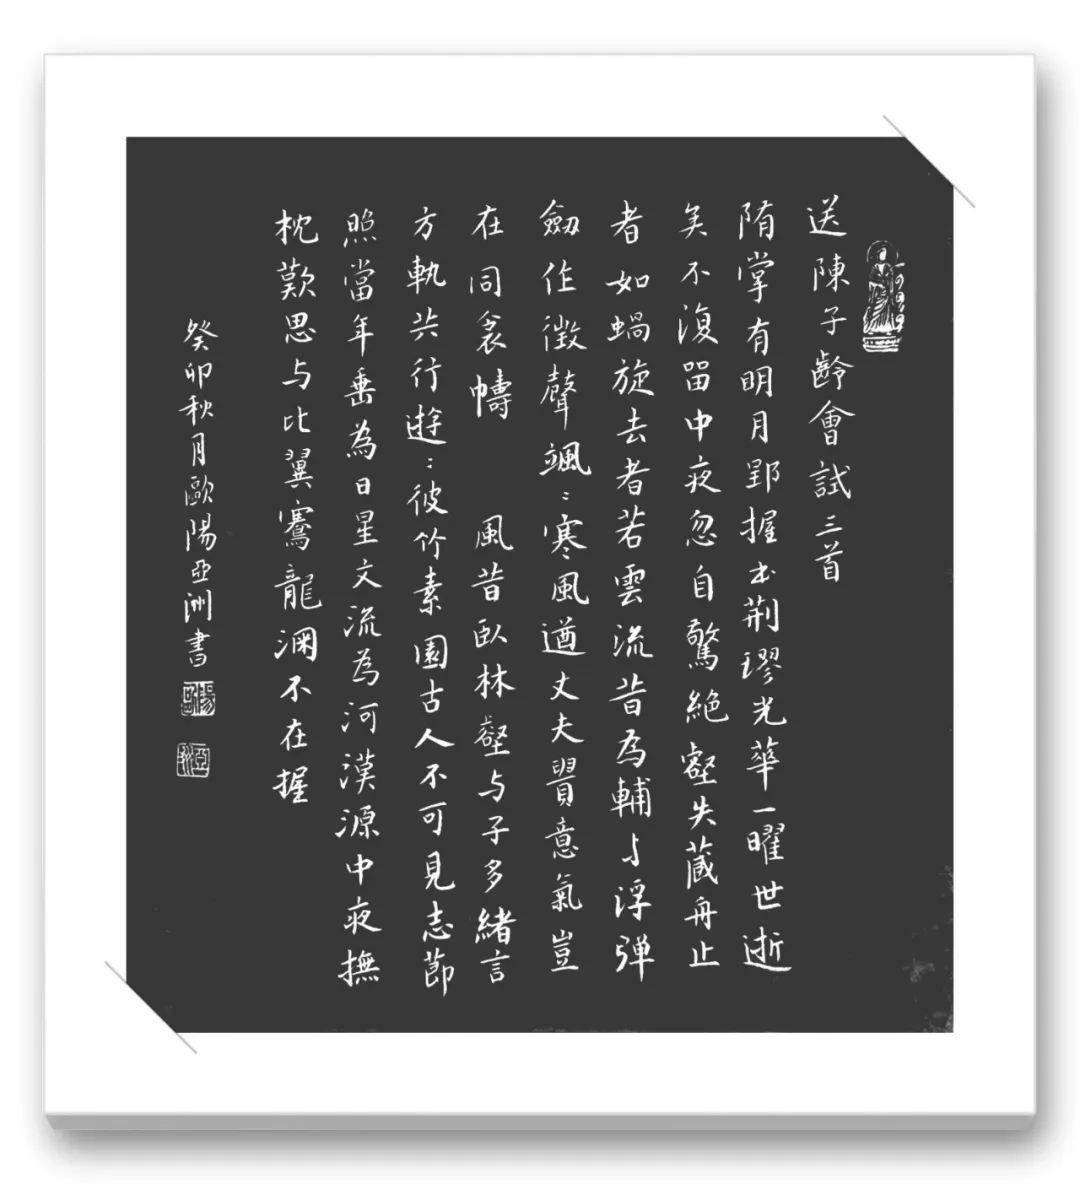 送陳子齡會試三首
隋掌有明月郢握出荆璆光華一曜世逝
矣不復畱中夜忽自驚絕壑失藏舟止
者如蝸旋去者若雲流昔為輔与浮弹
劒作徵聲颯：寒風遒丈夫貿意氣豈
在同衾幬 風昔臥林壑与子多緒言
方軌共行遊：彼竹素園古人不可見志節
照當年垂為日星文流為河漢源中夜撫
枕歎思与比翼騫龍淵不在握
癸卯秋月歐陽亞洲書